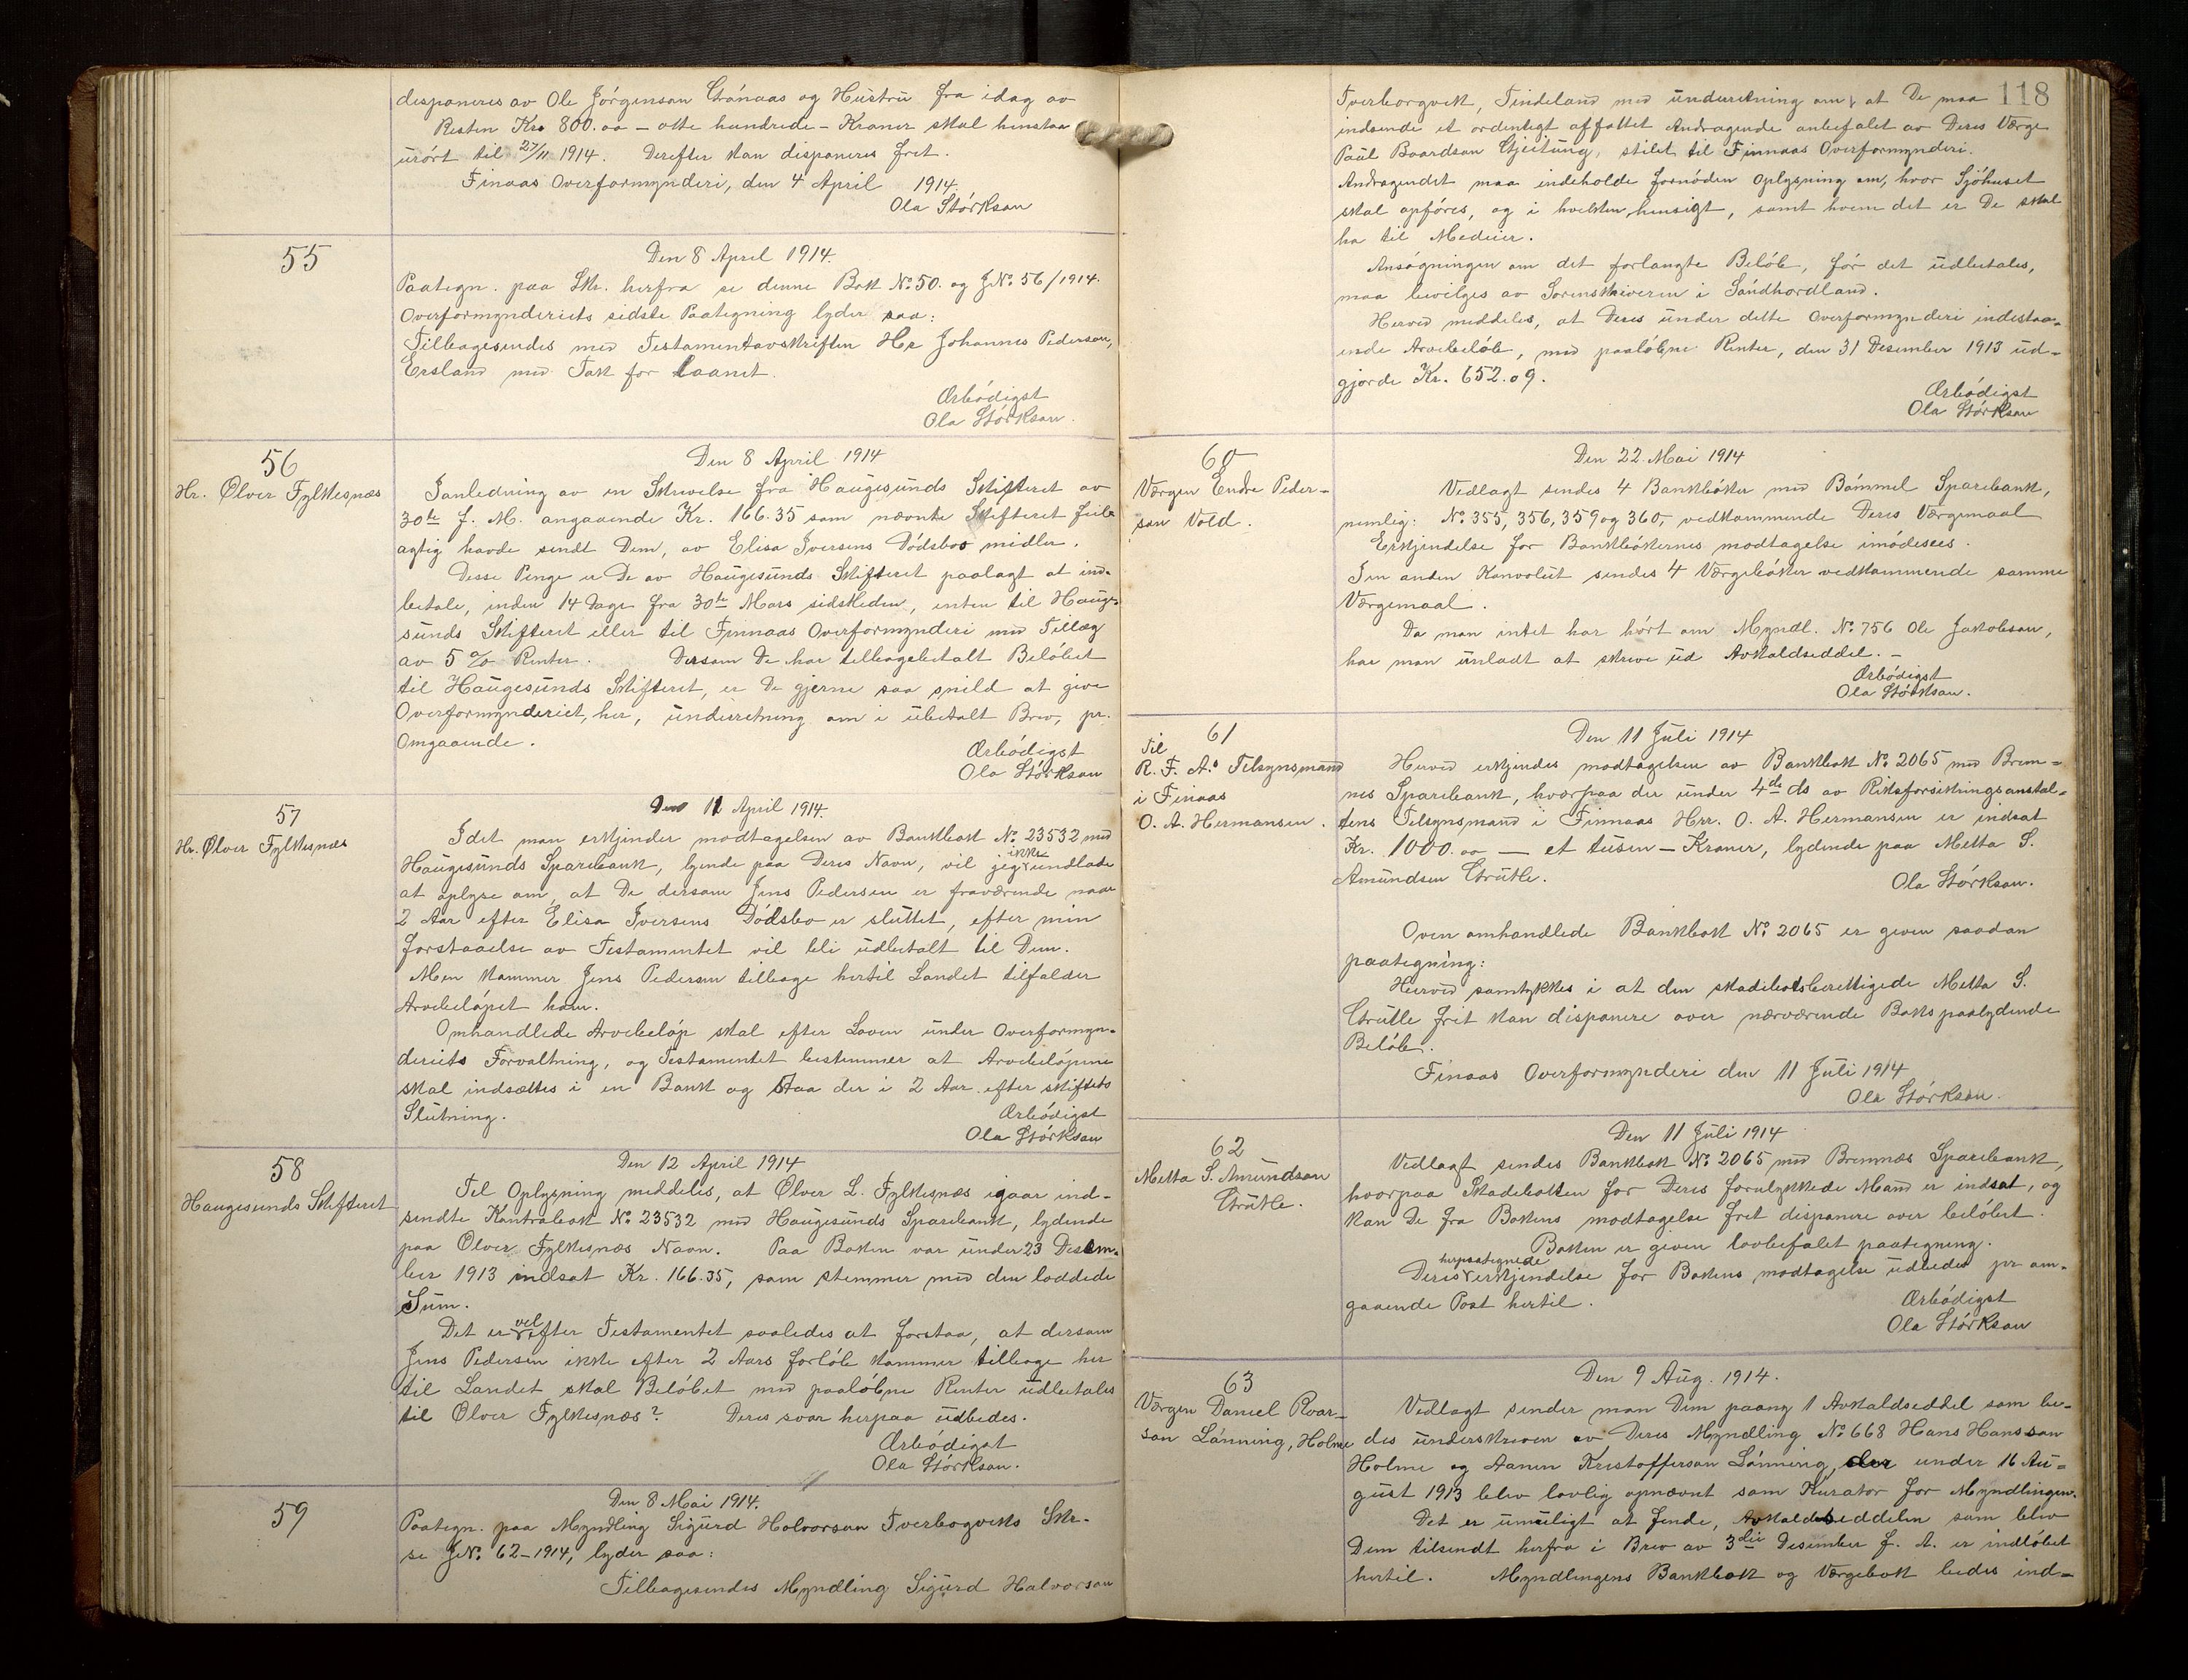 disponeres av Ole Jörgensen Grönaas og Hustru fra idag av
Resten Kr. 800.00 – otte hundrede – Kroner skal henstaa
urört til 27/11 1914. Derefter kan disponeres frit.
Finaas Overformynderi, den 4 April 1914.
Ola Störkson
55
Den 8 April 1914.
Paategn. paa Skr. herfra se denne Bok No. 50. og JNo. 56/1914.
Overformynderiets sidste Paategning lyder saa:
Tilbagesendes med Testamentavskriften Hr Johannes Pederson,
Ersland med Tak for Laanet.
Ærbödigst
Ola Störkson.
56
Hr. Ölver Fylkesnæs
Den 8 April 1914
Ianledning av en Skrivelse fra Haugesunds Skifteret av
30te f. M. angaaende Kr. 166.35 som nævnte Skifteret feil
agtig havde sendt Dem, av Elisa Iversens Dödsbos midler.
Desse Penge er De av Haugesunds Skifteret paalagt at ind-
betale, inden 14 Dage fra 30te Mars sidstleden, enten til Hauge-
sunds Skifteret eller til Finnaas Overformynderi med Tillæg
av 5 % Renter. Dersom De har tilbagebetalt Belöbet
til Haugesunds Skifteret, er De gjerne saa snild at give
Overformynderiet, her, underretning om i ubetalt Brev, pr.
Omgaaende.
Ærbödigst
Ola Störkson
57
Hr. Ölver Fylkesnæs
Den 11 April 1914.
Idet man erkjender modtagelsen av Bankbok No. 23532 med
Haugesunds Sparebank, lyende paa Deres Navn, vil jeg ikke undlade
at oplyse om, at De dersom Jens Pedersen er fraværende naar
2 Aar efter Elisa Iversens Dödsbo er sluttet, efter min
forstaaelse av Testamentet vil bli udbetalt til Dem.
Men kommer Jens Pedersen tilbage hertil Landet tilfalder
Arvebelöpet ham.
Omhandlede Arvebelöp skal efter Loven under Overformyn-
deriets Forvaltning, og Testamentet bestemmer at Arvebelöpene
skal indsættes i en Bank og staa der i 2 Aar efter skiftets
Slutning.
Ærbödigst
Ola Störkson
58
Haugesunds Skifteret
Den 12 April 1914
Til Oplysning meddeles, at Ölver L. Fylkesnæs igaar ind-
sendte Kontrabok No. 23532 med Haugesunds Sparebank, lydende
paa Ölver Fylkesnæs Navn. Paa Boken var under 23 Desem-
ber 1913 indsat Kr. 166.35, som stemmer med den loddede
Sum.
Det er vel efter Testamentet saaledes at forstaa, at dersom
Jens Pedersen ikke efter 2 Aars forlöb kommer tilbage her
til Landet skal Belöbet med paalöbne Renter udbetales
til Ölver Fylkesnæs? Deres svar herpaa udbedes.
Ærbödigst
Ola Störkson.
59
Den 8 Mai 1914.
Paategn. paa Myndling Sigurd Halvorson Tverbogviks Skr.
se JNo. 62-1914, lyder saa:
Tilbagesendes Myndling Sigurd Halvorson
118
Tverborgvik, Tindeland med underretning om, at De maa
indsende et ordentligt affattet Andragende anbefalet av Deres Værge
Paul Baardson Gjeitung, stilet til Finnaas Overformynderi.
Andragendet maa indeholde fornöden Oplysning om, hvor Sjöhuset
skal opföres, og i hvilken hensigt, samt hvem det er De skal
ha til Medeier.
Ansögningen om det forlangte Belöb, för det udbetales,
maa bevilges av Sorenskriveren i Söndhordland.
Herved meddeles, at Deres under dette Overformynderi indestaa-
ende Arvebelöb, med paalöbne Renter, den 31 Desember 1913 ud-
gjorde Kr. 652.09.
Ærbödigst
Ola Störkson
60
Værgen Endre Peder-
son Vold.
Den 22. Mai 1914
Vedlagt sendes 4 Bankböker med Bömmel Sparebank,
nemlig: No. 355, 356, 359 og 360, vedkommende Deres Værgemaal
Erkjendelse for Bankbökernes modtagelse imödesees.
I en anden Konvolut sendes 4 Værgeböker vedkommende samme
Værgemaal.
Da man intet har hört om Myndl. No. 756 Ole Jakobson,
har man unladt at skrive ud Avkaldseddel. –
Ærbödigst
Ola Störkson.
61
Til
R. F. A.s Tilsynsmand
i Finaas
O. A. Hermansen.
Den 11 Juli 1914
Herved erkjendes modtagelsen av Bankbok No. 2065 med Brem-
nes Sparebank, hvorpaa der under 4de ds av Riksforsikringsanstal-
tens Tilsynsmand i Finnaas Hrr. O. A. Hermansen er indsat
Kr. 1000.00 — et tusen – Kroner, lydende paa Metta S.
Amundsen Grutle.
Ola Störkson.
Oven omhandlede Bankbok No. 2065 er given saadan
paategning:
Herved samtykkes i at den skadebotsberettigede Metta S.
Grutle frit kan disponere over nærværende Boks paalydende
Belöb.
Finaas Overformynderi den 11 Juli 1914
Ola Störkson.
62
Metta S. Amundson
Grutle.
Den 11 Juli 1914
Vedlagt sendes Bankbok No. 2065 med Bremnæs Sparebank,
hvorpaa Skadeboten for Deres forulykkede Mand er indsat, og
kan De fra Bokens modtagelse frit disponere over belöbet.
Boken er given lovbefalet paategning.
Deres herpaategnede erkjendelse for Bokens modtagelse udbedes pr om-
gaaende Post hertil.
Ærbödigst
Ola Störkson
63
Værgen Daniel Roar-
son Lönning, Holme
Den 9 Aug. 1914.
Vedlagt sender man Dem paany 1 Avkaldseddel som be-
des underskreven av Deres Myndling No. 668 Hans Hansson
Holme og Aanen Kristofferson Lönning, der under 16 Au-
gust 1913 blev lovlig opnævnt som Kurator for Myndlingen.
Det er umuligt at finde, Avkaldseddelen som blev
Dem tilsendt herfra i Brev av 3die Desember f. A. er indlöbet
hertil. Myndlingens Bankbok og Værgebok bedes ind-